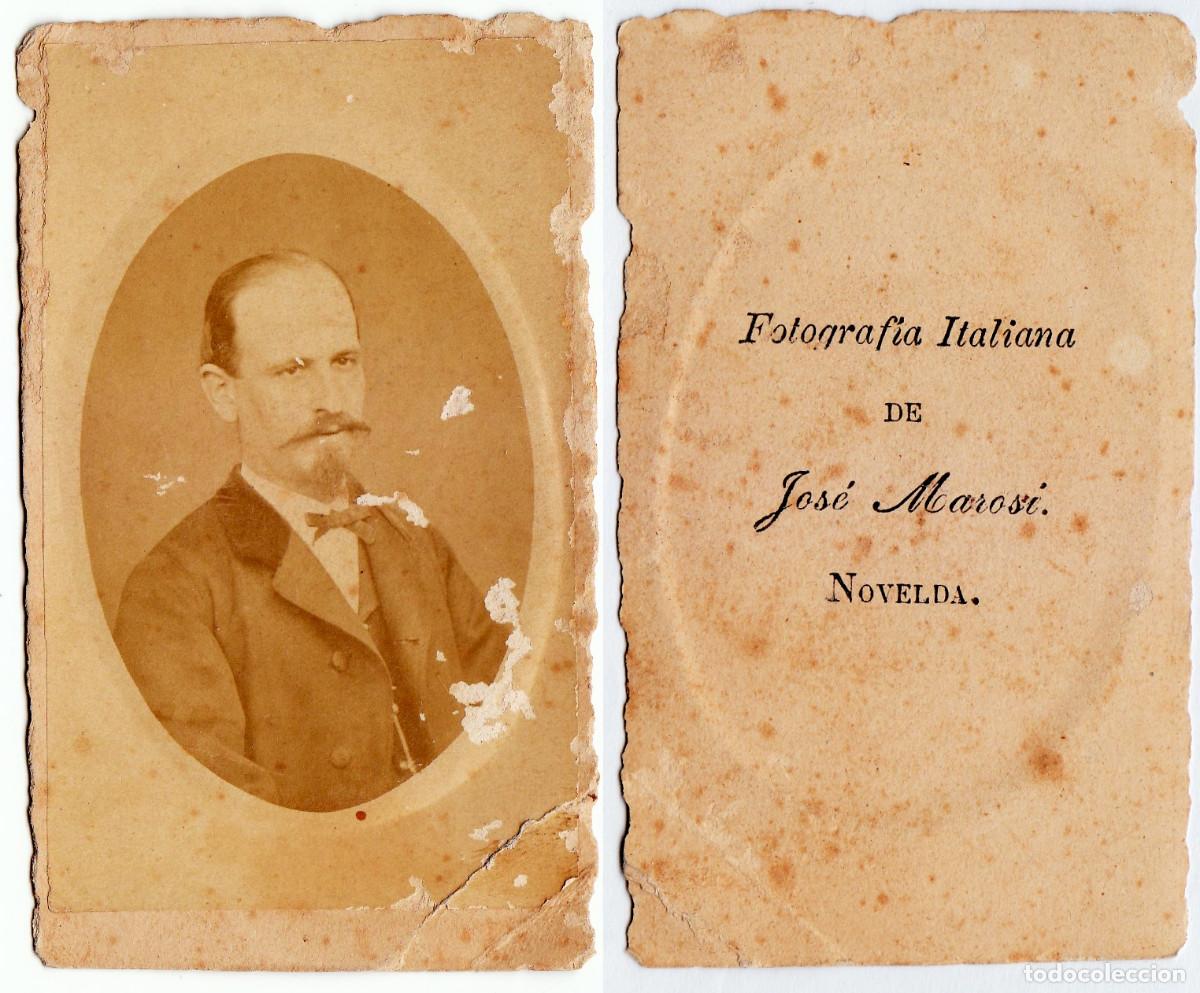 Fotografía Italiana
DE
José Marosi.
NOVELDA.
todocoleccion